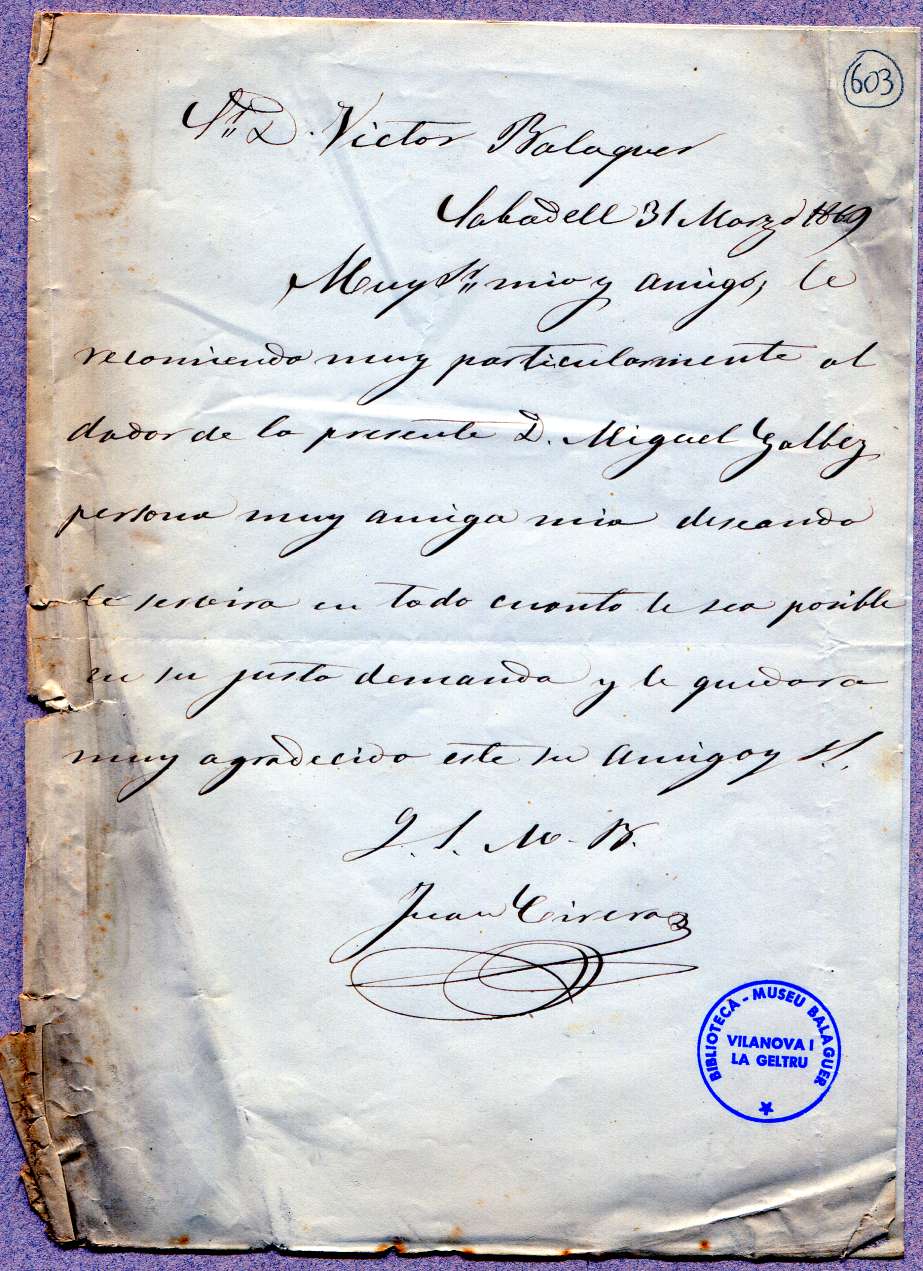 603
Sr. D. Victor Balaguer
Sabadell 31 Marzo 1869
Muy Sr. mio y amigo, le
recomiendo muy particularmente al
dador de la presente D. Miguel Galbez
persona muy amiga mia deseando
le servira en todo cuanto le sea posible
en su justa demanda y le quedara
muy agradecido este su amigo y S. S.
Q. S. M. B.
Juan Cirera
BIBLIOTECA - MUSEU BALAGUER
VILANOVA I
LA GELTRU